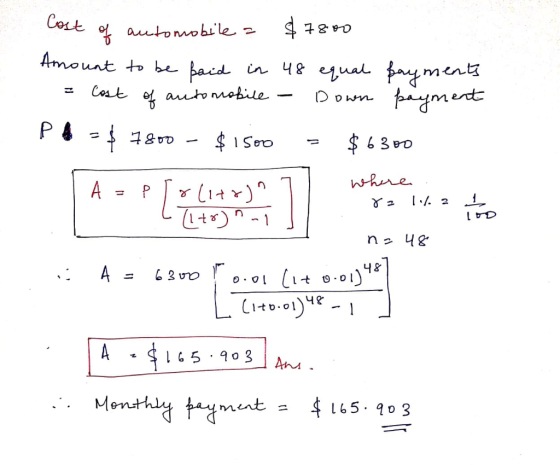 Cost of automobile = $7800
Amount to be paid in 48 equal payments
= Cost of automobile - Down payment
P = $ 7800 - $1500 = $6300
A = P [ r(1+r)^n / (1+r)^n - 1 ]
where
r = 1% = 1/100
n = 48
∴ A = 6300 [ 0.01 (1+0.01)^48 / (1+0.01)^48 - 1 ]
A = $165.903 Ans.
∴ Monthly payment = $165.903